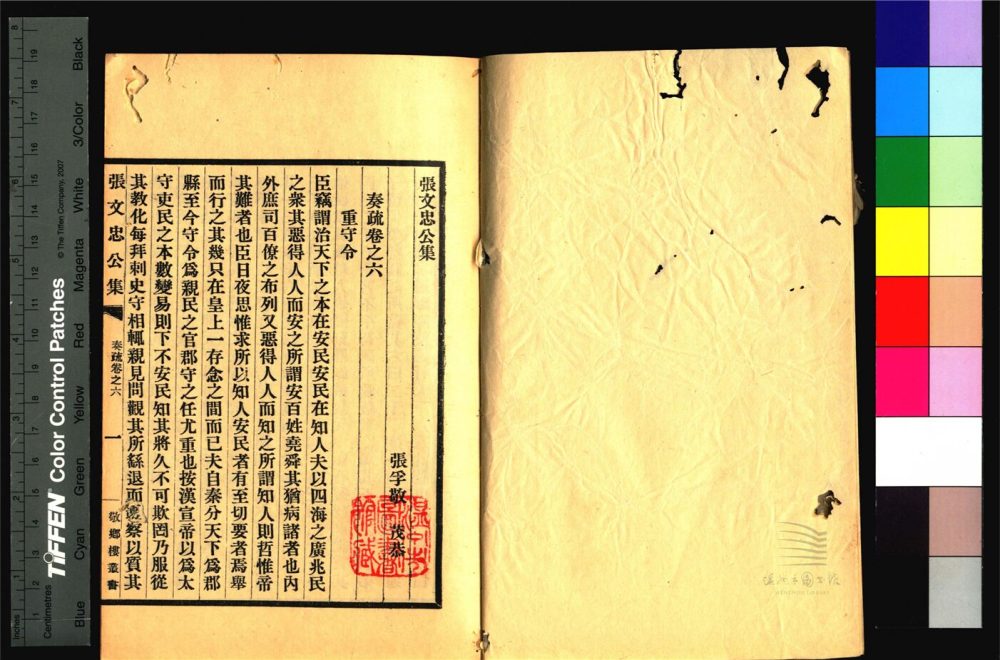 張文忠公集
奏疏卷之六
張孚敬 茂恭
重守令
臣竊謂治天下之本在安民安民在知人夫以四海之廣兆民
之衆其惡得人人而安之所謂安百姓堯舜其猶病諸者也內
外庶司百僚之布列又惡得人人而知之所謂知人則哲惟帝
其難者也臣日夜思惟求所以知人安民者有至切要者焉舉
而行之其幾只在皇上一存念之間而已夫自秦分天下爲郡
縣至今守令爲親民之官郡守之任尤重也按漢宣帝以爲太
守吏民之本數變易則下不安民知其將久不可欺罔乃服從
其教化每拜刺史守相輒親見問觀其所繇退而考察以質其
張文忠公集
奏疏卷之六
一
敬鄉樓叢書
溫州市圖書館
WENZHOU LIBRARY
Inches
Centimetres
TIFFEN Color Control Patches
© The Tiffen Company, 2007
Blue
Cyan
Green
Yellow
Red
Magenta
White
3/Color
Black